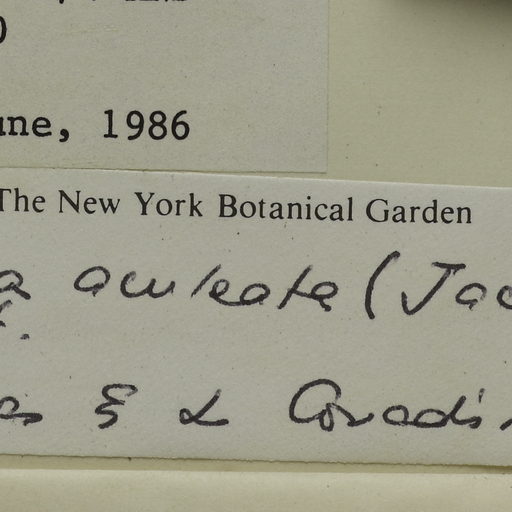 0
une, 1986
The New York Botanical Garden
a aculeata (Jac
f.
as & L Coradin